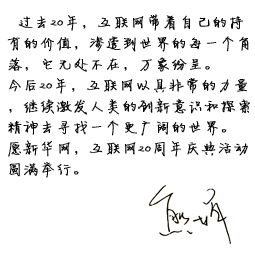 过去20年，互联网带着自己的持
有的价值，渗透到世界的每一个角
落，它无处不在，万象纷呈。
今后20年，互联网以其非常的力量
，继续激发人类的创新意识和探索
精神去寻找一个更广阔的世界。
愿新华网，互联网20周年庆典活动
圆满举行。